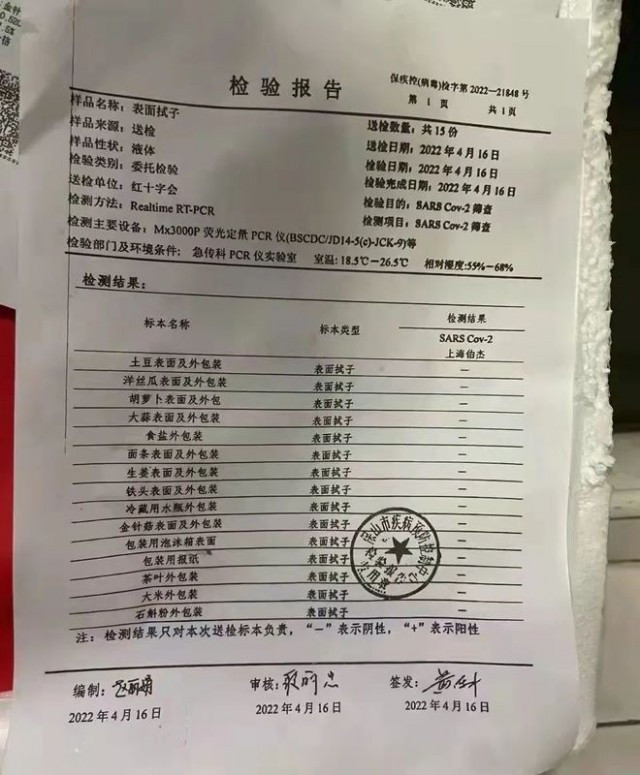 检验报告
保疾控(病毒)检字第2022—21848号
第 1 页 共1页
样品名称：表面拭子
样品来源：送检 送检数量：共15份
样品性状：液体 送检日期：2022年4月16日
检验类别：委托检验 检验日期：2022年4月16日
送检单位：红十字会 检验完成日期：2022年4月16日
检测方法：Realtime RT-PCR 检验目的：SARS Cov-2 筛查
检测主要设备：Mx3000P 荧光定量 PCR 仪(BSCDC/JD14-5(c)-JCK-9)等 检测项目：SARS Cov-2 筛查
检验部门及环境条件：急传科 PCR 仪实验室 室温：18.5℃—26.5℃ 相对湿度:55%—68%
检测结果：
标本名称 标本类型 检测结果
SARS Cov-2
上海伯杰
土豆表面及外包装 表面拭子 —
洋丝瓜表面及外包装 表面拭子 —
胡萝卜表面及外包 表面拭子 —
大蒜表面及外包装 表面拭子 —
食盐外包装 表面拭子 —
面条表面及外包装 表面拭子 —
生姜表面及外包装 表面拭子 —
铁头表面及外包装 表面拭子 —
冷藏用水瓶外包装 表面拭子 —
金针菇表面及外包装 表面拭子 —
包装用泡沫箱表面 表面拭子 —
包装用报纸 表面拭子 —
茶叶外包装 表面拭子 —
大米外包装 表面拭子 —
石斛粉外包装 表面拭子 —
山市疾病预防控制中心
检验报告
专用章
注：检测结果只对本次送检标本负责，“—”表示阴性，“+”表示阳性
编制： 审核： 签发：
2022年4月16日 2022年4月16日 2022年4月16日